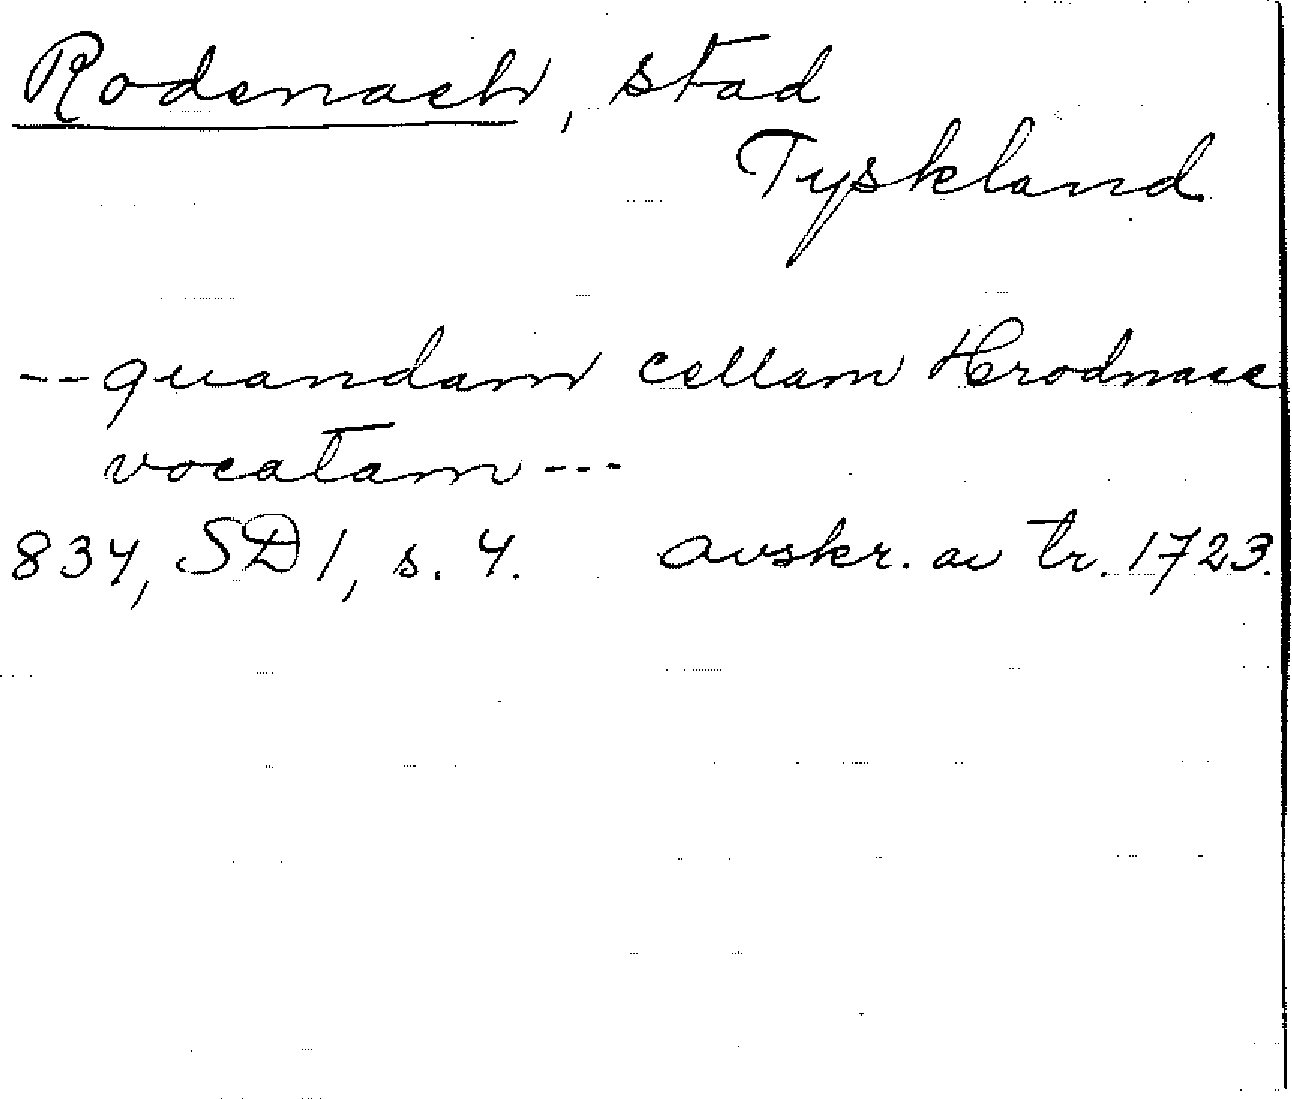 Rodenach, stad
Tyskland
--quandam cellam Hrodnace
vocatam---
834, SD 1, s. 4. avskr. av tr. 1723.